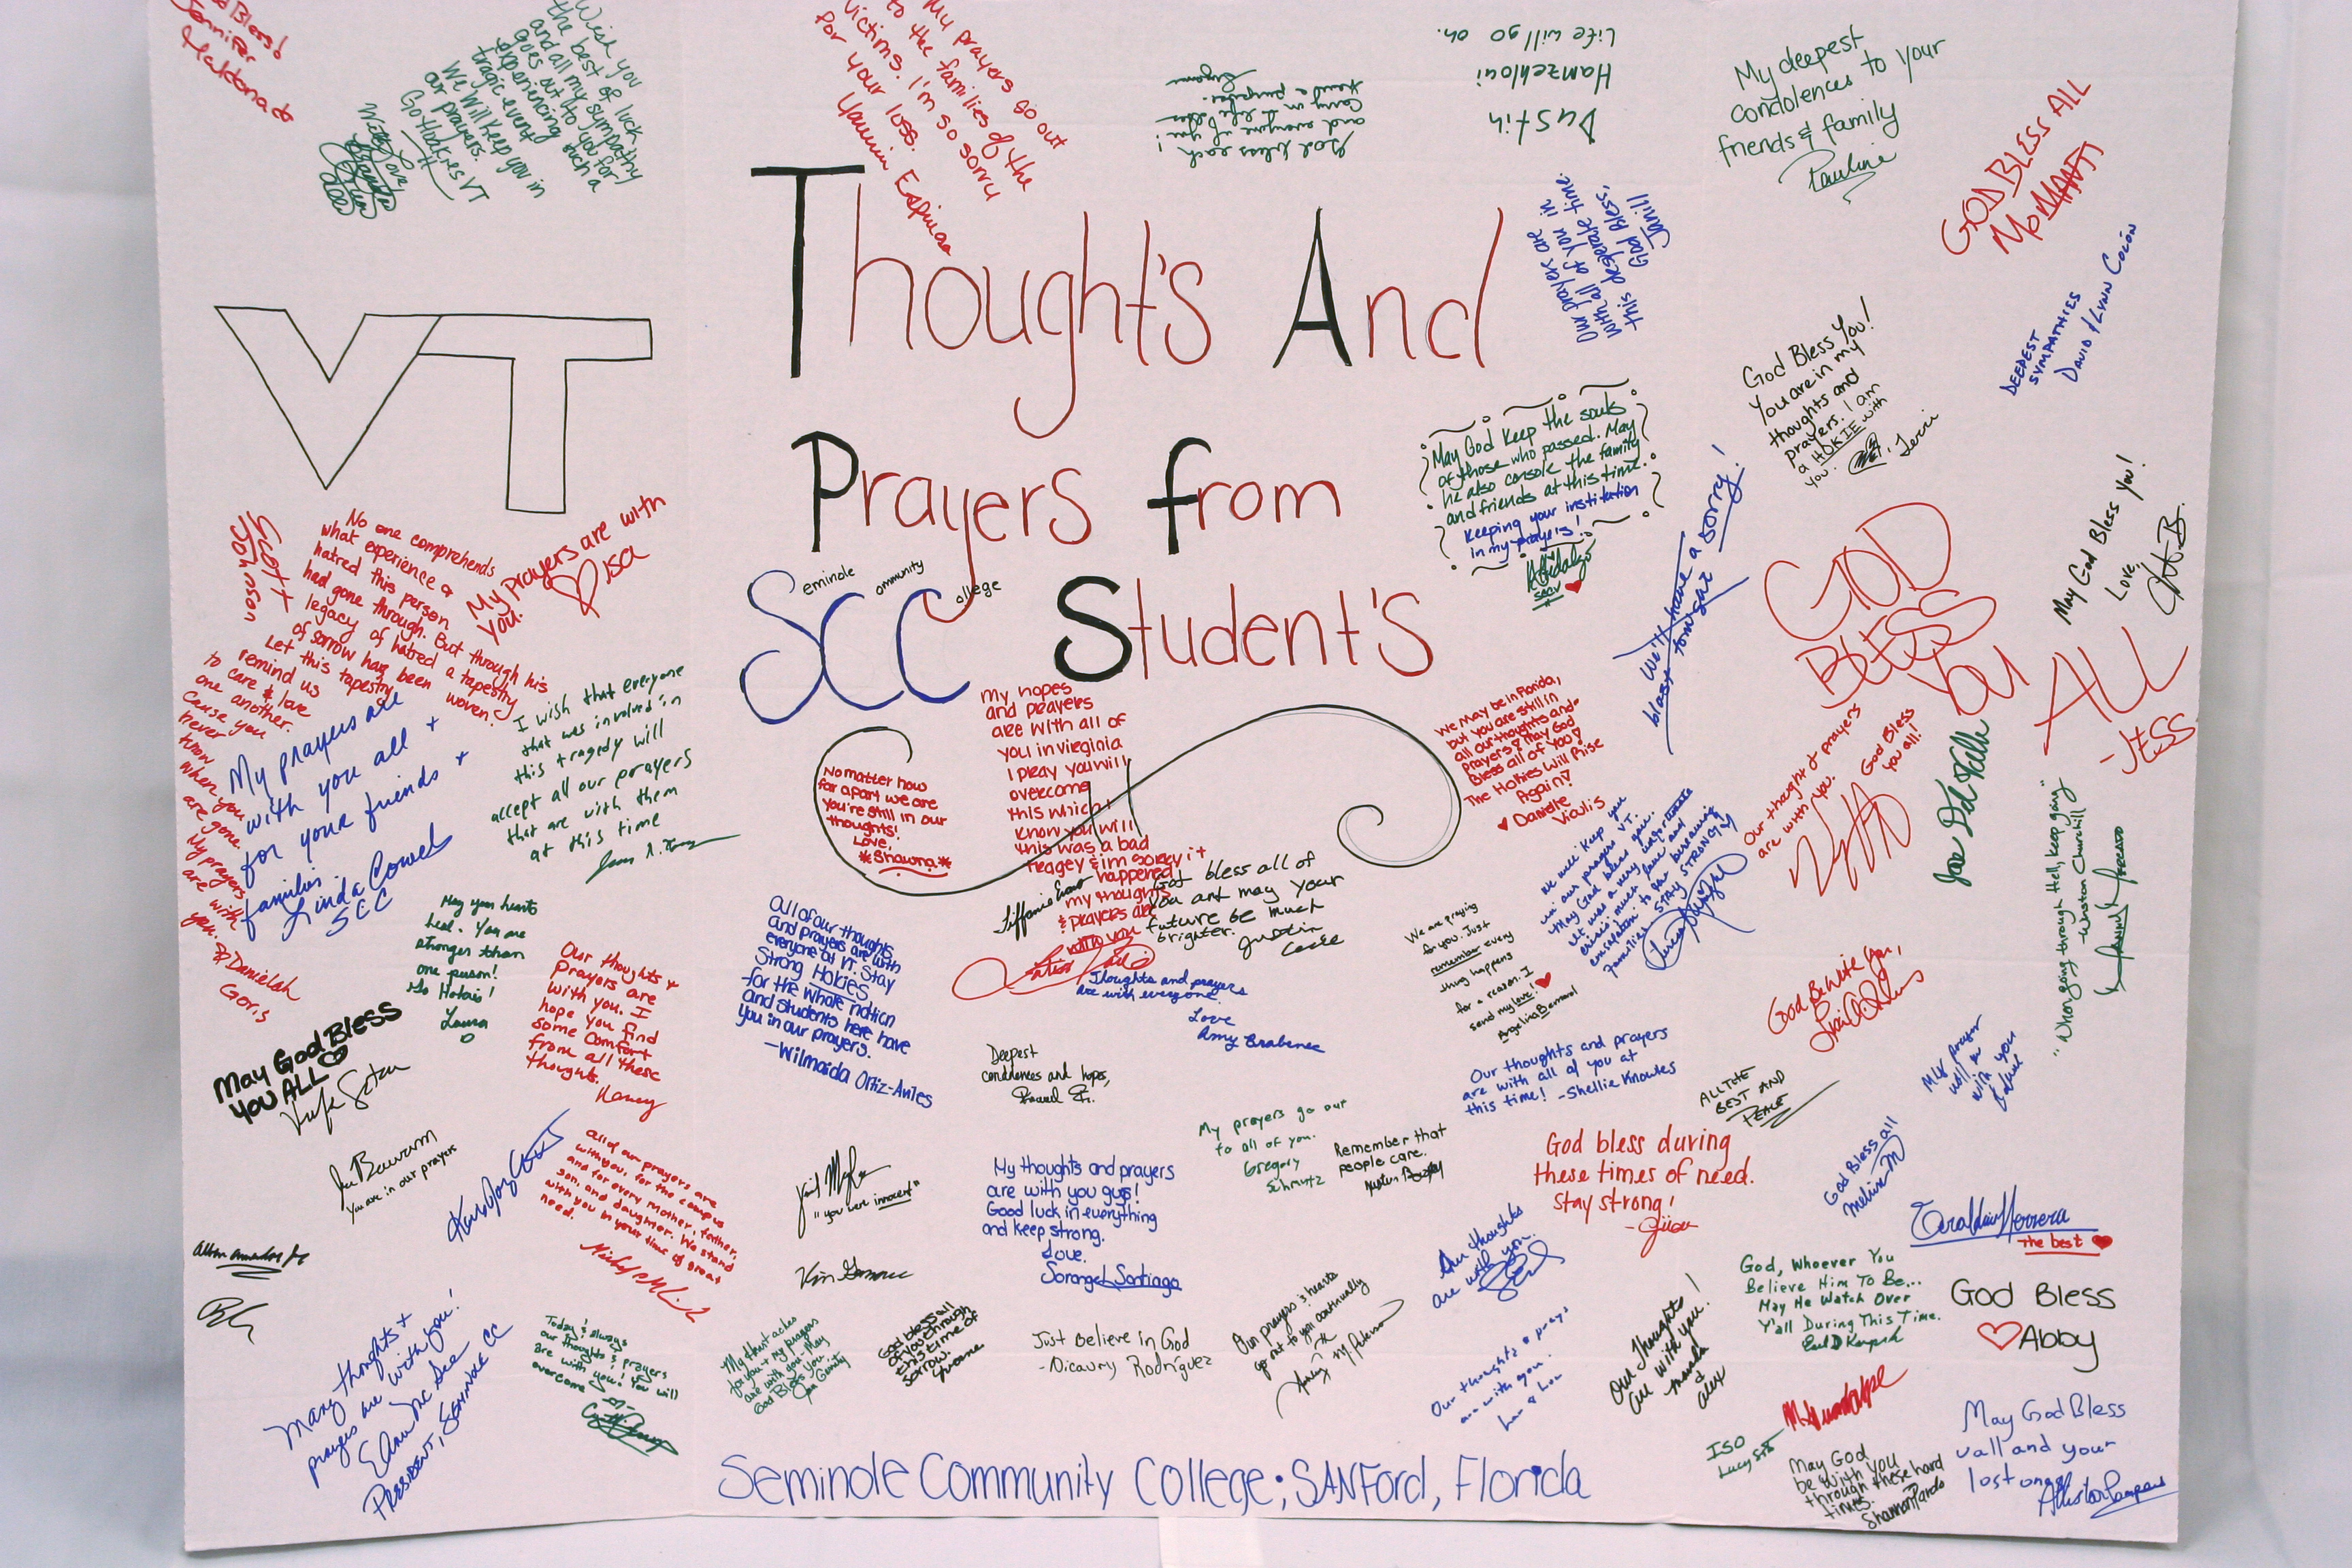 God Bless!
Jennifer
Maldonado
Wish you
the best of luck
and all my sympathy
goes out to you for
experiencing such a
tragic event
We will keep you in
our prayers.
Go Hookies VT
With Love,
My prayers go out
to the families of the
victims. I'm so sorry
for your loss.
Yasmin Espinosa
God bless each
and everyone of you!
Life will go on.
Hamzehloui
Dustin
My deepest
condolences to your
friends & family
Pauline
GOD BLESS ALL
Our prayers are
with all of you in
this desperate time.
God Bless,
Janill
DEEPEST
SYMPATHIES
DAVID & LYNN COLÓN
VT
Thought's And
Prayers from
SCC Student's
Seminole
Community
College
God Bless You!
You are in my
thoughts and
prayers. I am
a HOKIE with
you.
Terri
May God keep the souls
of those who passed. May
he also console the family
and friends at this time.
Keeping your institution
in my prayers!
A Hidalgo
We'll have a sorry!
May God Bless You!
Love,
GOD
BLESS
YOU
ALL
-JESS
Scott
Johnson
No one comprehends
what experience a
hatred this person
had gone through. But through his
legacy of hatred a tapestry
of sorrow has been woven.
Let this tapestry
remind us
to care & love
one another.
Cause you
never
know
when you
are gone.
My prayers
are with
you.
Danielah
Goris
My prayers are with
you.
♡ Lisa
My prayers are
with you all +
for your friends +
families.
Linda Cowel
SCC
I wish that everyone
that was involved in
this tragedy will
accept all our prayers
that are with them
at this time
No matter how
far apart we are
You're still in our
thoughts!
Love,
*Shawna*
my hopes
and prayers
are with all of
you in virginia
I pray you will
overcome
this which I
know you will
this was a bad
tragey & im sorry it
happened
my thoughts
& prayers are
with you
Got bless all of
you ant may your
future be much
brighter.
Justin
We may be in Florida,
but you are still in
all our thoughts and
prayers! May God
Bless all of You!
The Hokies Will Rise
Again!
♥ Danielle
Viculis
We will keep you
in our prayers VT.
May God bless you.
Our thought & prayers
are with you.
God Bless
you all!
"When going through Hell, keep going"
-Winston Churchill
May your hearts
heal. You are
stronger than
one person!
Go Hokies!
Laura
Our thoughts +
Prayers are
with you. I
hope you find
some comfort
from all these
thoughts.
Nancy
All of our thoughts
and prayers are with
everyone at VT. Stay
Strong Hokies
for the whole nation
and students here have
you in our prayers.
-Wilmaida Ortiz-Aviles
Thoughts and prayers
are with everyone.
Love
Amy Brabenec
We are praying
for you. Just
remember every
thing happens
for a reason. I
send my love! ♥
Angelina Bernard
God Be With You,
May God Bless
You ALL
Deepest
condolences and hopes,
Our thoughts and prayers
are with all of you at
this time! -Shellie Knowles
ALL THE
BEST AND
PEACE
My prayer
will be
with you
Joe Bowerum
You are in our prayers
All of our prayers are
with you, for the campus
and for every mother, father,
son, and daughter. We stand
with you in your time of great
need.
"you were innocent"
My thoughts and prayers
are with you guys!
Good luck in everything
and keep strong.
Love,
Sorangel Santiago
My prayers go out
to all of you.
Gregory
Schmutz
Remember that
people care.
God bless during
these times of need.
Stay strong!
God Bless all
Melissa M
Geraldin Herrera
The best ♥
Our thoughts
are with you.
God, Whoever You
Believe Him To Be...
May He Watch Over
Y'all During This Time.
God Bless
♡ Abby
Many thoughts +
prayers are with you!
PRESIDENT, SEMINOLE CC
Today & always
our thoughts & prayers
are with you! You will
overcome
My heart aches
for you & my prayers
are with you - May
God Bless you.
God bless all
of you through
this time of
sorrow.
Yvonne
Just Believe in God
-Dicaury Rodríguez
Our prayers & hearts
go out to you continually
Our thoughts & prays
are with you.
Our thoughts
are with you!
Amanda
&
Alex
ISO
May God
be with you
through these hard
times.
Shannon Pardo
May God Bless
y'all and your
lost ones
Seminole Community College; SANFord, Florida